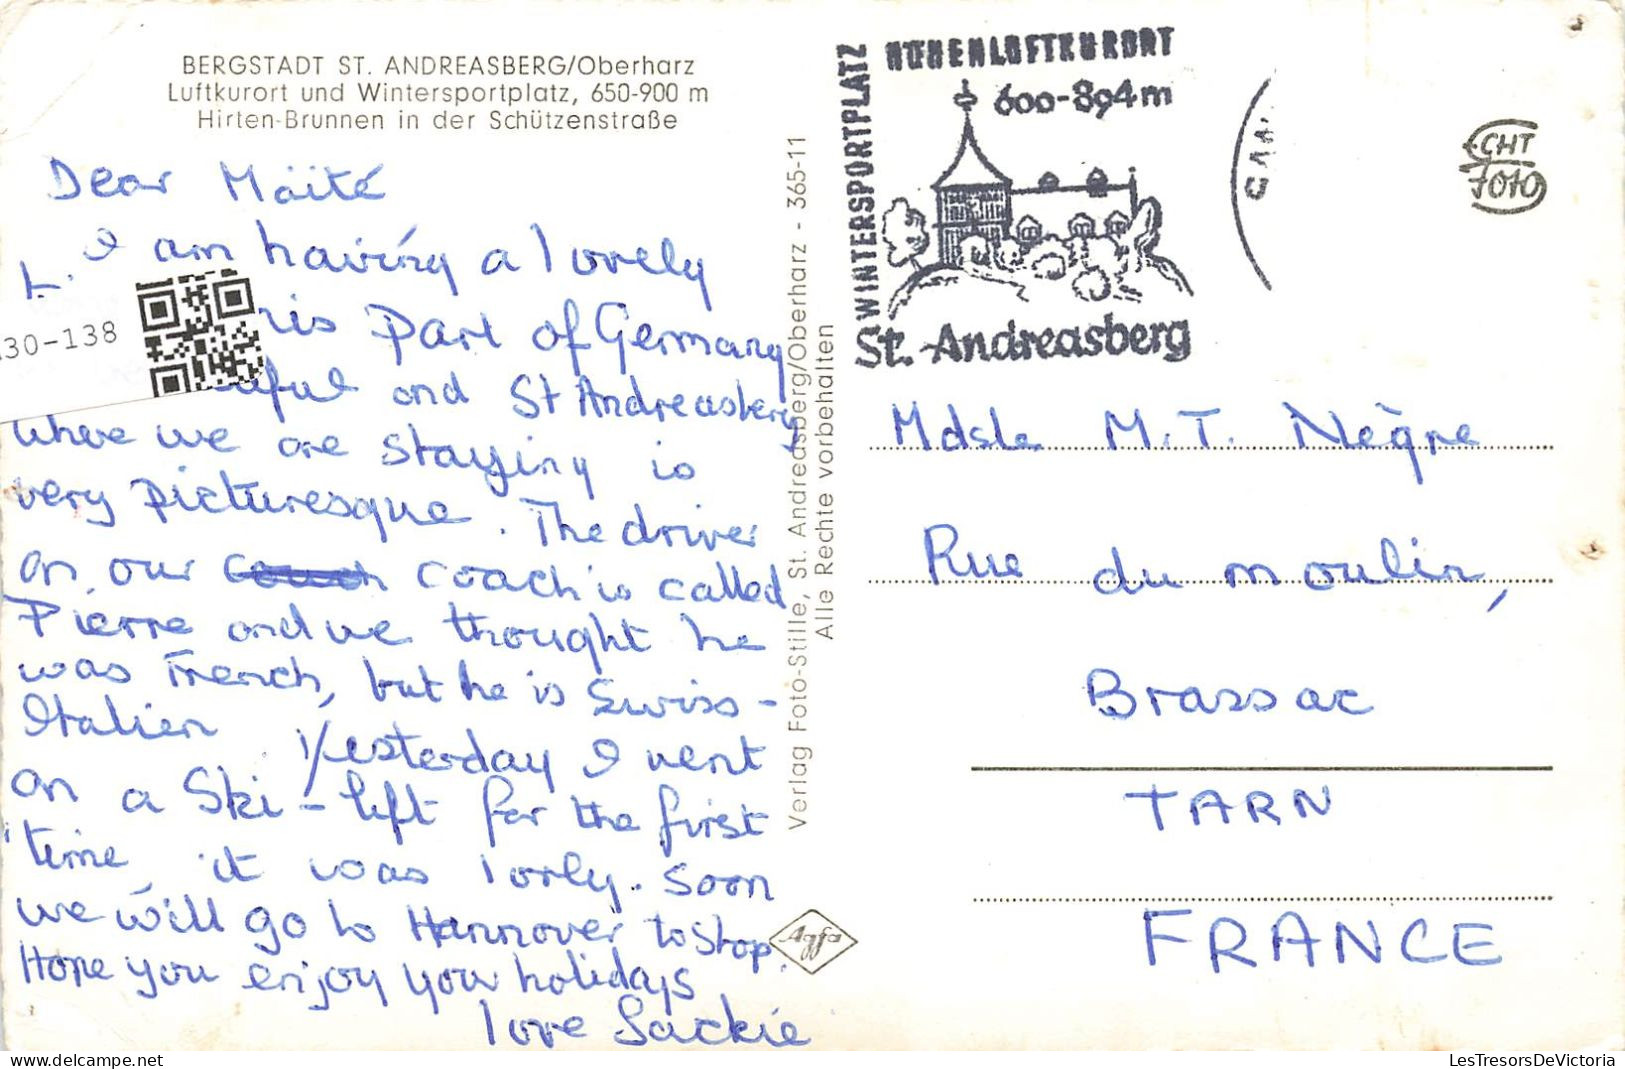 BERGSTADT ST. ANDREASBERG/Oberharz
Luftkurort und Wintersportplatz, 650-900 m
Hirten-Brunnen in der Schützenstraße
Dear Maïté
I am having a lovely
Part of Germany
and St Andreasberg,
where we are staying is
very picturesque. The driver
on our coach is called
Pierre and we thought he
was French, but he is Swiss-
Italien. Yesterday I went
on a Ski-lift for the first
time, it was lovly. Soon
we will go to Hannover to stop.
Hope you enjoy your holidays
love Jackie
30-138
Verlag Foto-Stille, St. Andreasberg/Oberharz - 365-11
Alle Rechte vorbehalten
Agfa
WINTERSPORTPLATZ
HÖHENLUFTKURORT
600-894m
St. Andreasberg
ECHT
FOTO
Mdsle M.T. Nègre
Rue du moulin,
Brassac
TARN
FRANCE
LesTresorsDeVictoria